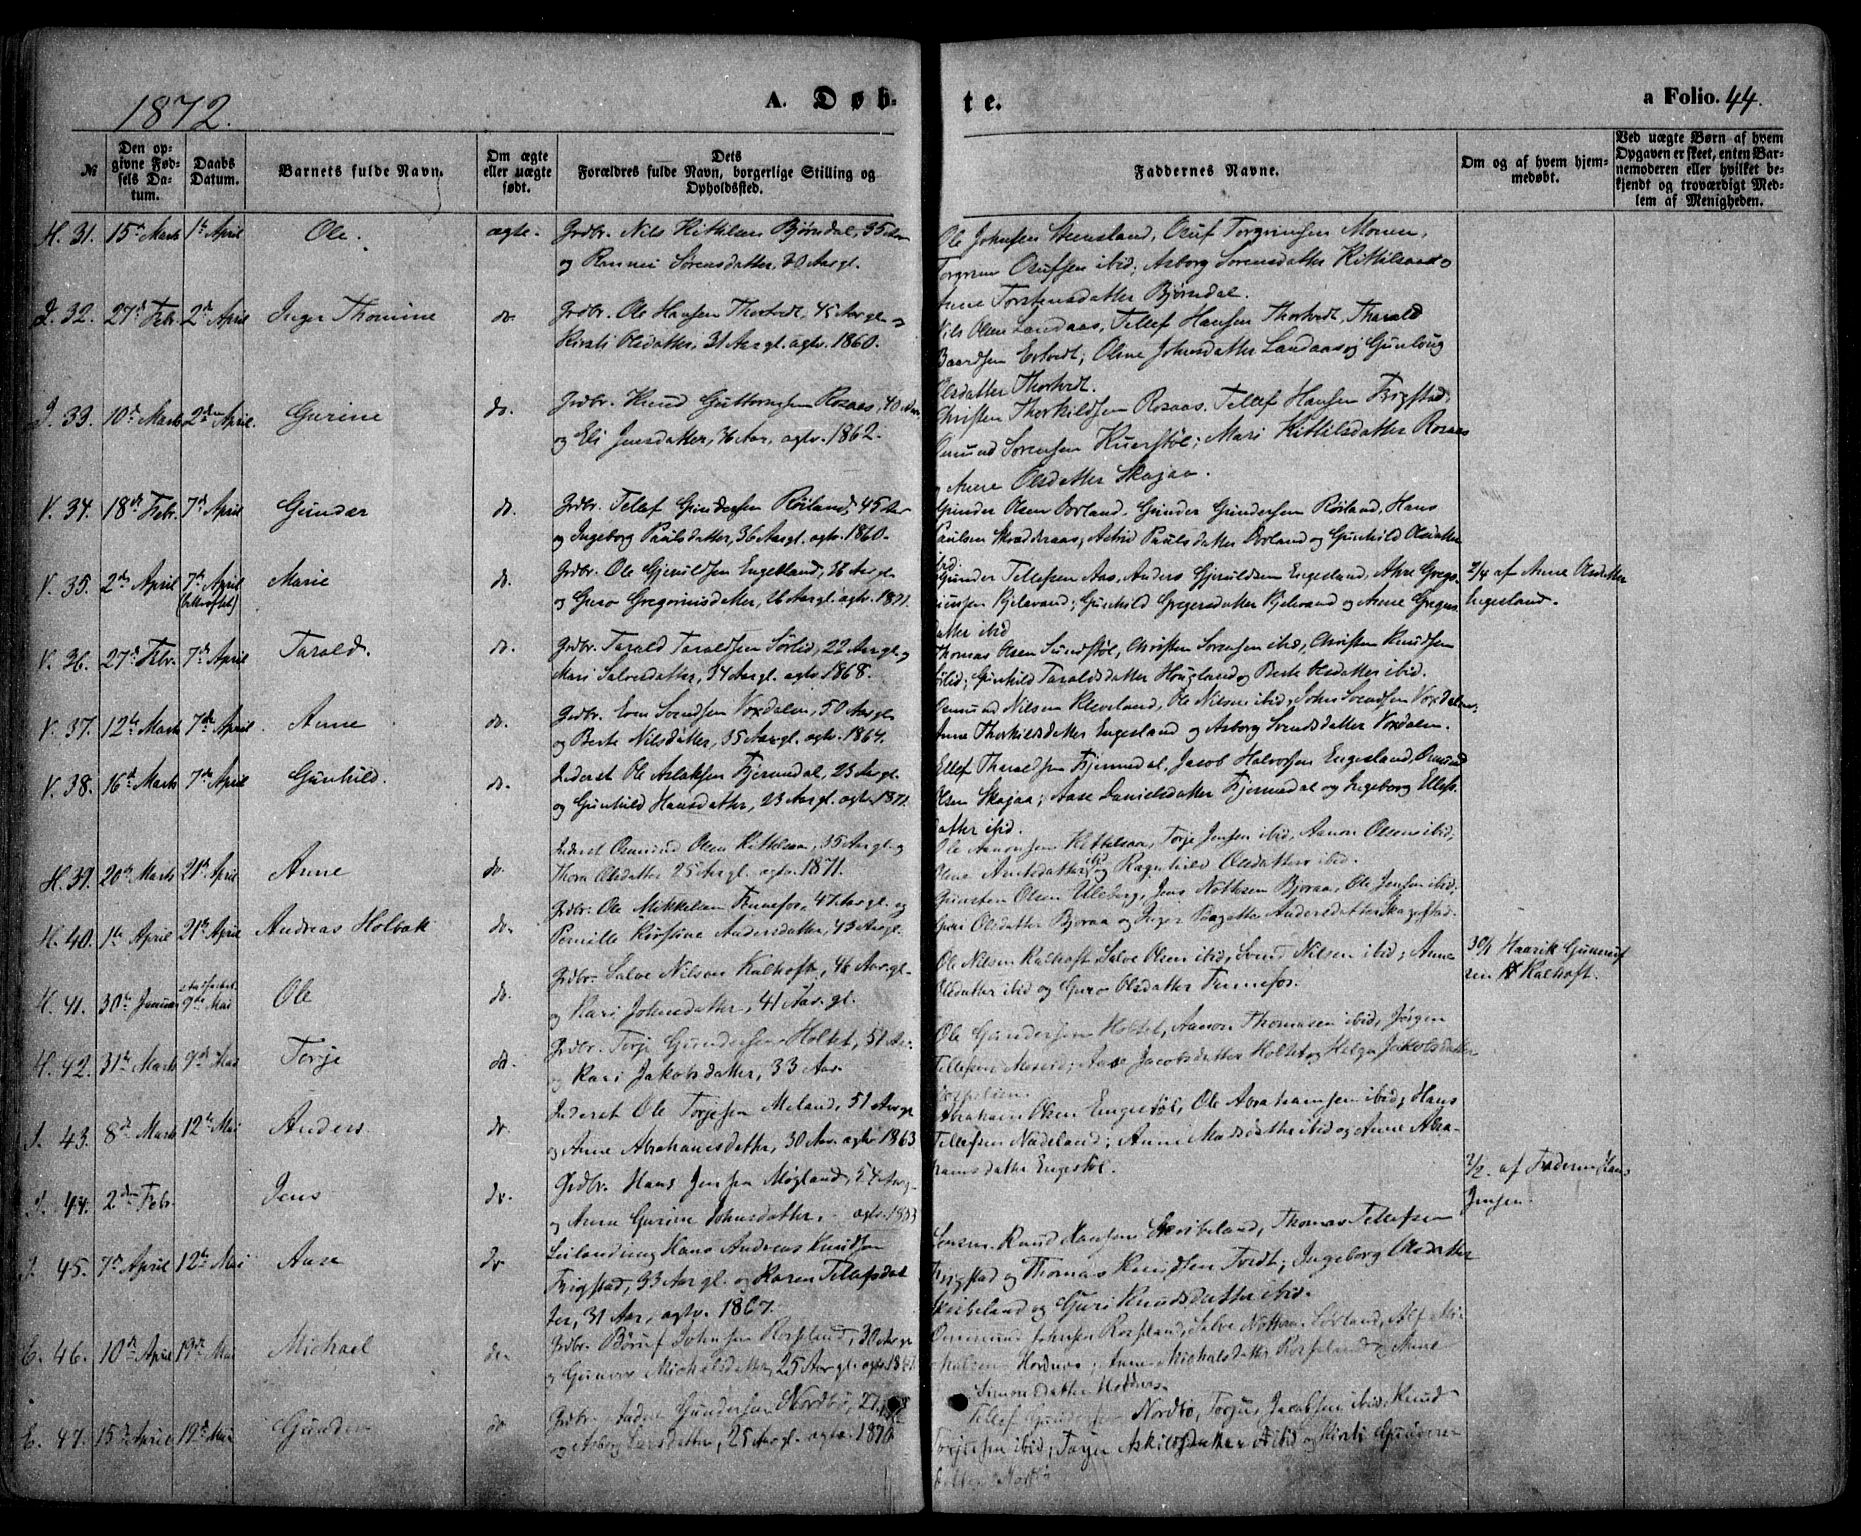 1872.
A. Døb-
te.
a Folio. 44.
№
Den op-
givne Fød-
sels Da-
tum.
Daabs
Datum.
Barnets fulde Navn.
Om ægte
eller uægte
født.
Dets
Forældres fulde Navn, borgerlige Stilling og
Opholdssted.
Faddernes Navne.
Om og af hvem hjem-
medøbt.
Ved uægte Børn af hvem
Opgaven er skeet, enten Bar-
nemoderen eller hvilket be-
kjendt og troværdigt Med-
lem af Menigheden.
H. 31. 15de Marts 1ste April Ole. ægte.
Grdbr. Nils Kittilsen Bjørndal, 35 Aar
og Sørensdatter, 30 Aar gl.
Ole Johnsen Steensland, Osuf Torgrimsen Moren,
Torgrim Osufsen ibid; Asborg Sørensdatter Kittilsaas og
Anne Torstensdatter Bjørndal.
32. 27de Febr. 2den April Inger Thomine do.
Grdbr. Ole Hansen Thortvedt, 45 Aar gl. og
Kirsti Olsdatter, 31 Aar gl. agtv. 1860.
Nils Olsen Landaas, Tellef Hansen Thortvedt, Tharald
Baardsen Ertvedt; Olene Johnsdatter Landaas og Gunloug
Olsdatter Thortvedt.
33. 10de Marts 2den April. Gurine do.
Grdbr. Knud Guttormsen Rosaas, 40 Aar
og Eli Jensdatter, 36 Aar, agtv. 1862.
Christen Thorkildsen Rosaas, Tellef Hansen Frigstad,
Osmund Sørensen Mari Kittilsdatter Rosaas
og Anne Olsdatter Skajaa.
V. 34. 18de Febr. 7de April Gunder do.
Grdbr. Tellef Gundersen Røiland, 45 Aar
og Ingeborg Paulsdatter, 36 Aar gl. agtv. 1860.
Gunder Olsen Birland, Gunder Gundersen Røiland, Hans
Paulsen Skradderaas, Astrid Paulsdatter Birland og Gunhild Olsdatter
ibid.
V. 35. 2den April 7de April Marie do.
Grdbr. Ole Gjeruldsen Engesland, 36 Aar gl.
og Guro Gregoriusdatter, 26 Aar gl. agtv. 1871.
Gunder Tellefsen Aas, Anders Gjeruldsen Engesland,
Gunhild Gregersdatter og Anne
datter ibid
2/4 af Anne Olsdatter
Engesland.
V. 36. 27de Febr. 7de April Tarald. do.
Grdbr. Tarald Taraldsen Sørlid, 22 Aar gl. og
Mari Salvesdatter, 34 Aar gl. agtv. 1868.
Thomas Olsen Sundstøl, Christen Sørensen ibid, Christen Knudsen
Gunhild Taraldsdatter Hougland og Berte Olsdatter ibid.
V. 37. 12te Marts 7de April Anne do.
Grdbr. Even Svendsen Voxdalen, 50 Aar gl.
og Berte Nilsdatter, 35 Aar gl. agtv. 1864.
Osmund Nilsen Kleveland, Ole Nilsen ibid, John Svendsen Voxdalen;
Anne Thorkildsdatter Engesland og Asborg Svendsdatter Voxdalen.
V. 38. 16de Marts 7de April Gunhild. do.
Inderst Ole Aslaksen Fjermedal, 23 Aar gl.
og Gunhild Hansdatter, 23 Aar gl. agtv. 1871.
Ellef Tharaldsen Fjermedal, Jacob Halvorsen Engesland, Osmund
Olsen Skajaa; Aase Danielsdatter Fjermedal og Ingeborg Ellefs-
datter ibid.
H. 39. 20de Marts 21de April Anne do.
Inderst Osmund Olsen Kittelsaa, 35 Aar gl. og
Thora Olsdatter 25 Aar gl. agtv. 1871.
Ole Aanonsen Kittelsaa, Torje Jensen ibid, Aanon Olsen ibid;
Olene Arntsdatter ibid og Ragnhild Olsdatter ibid.
H. 40. 1ste April 21de April Andreas Holbæk do.
Grdbr. Ole Mikkelsen Fennefos, 47 Aar gl. og
Pernille Kirstine Andersdatter, 43 Aar gl.
Gunsten Olsen Uleberg, Jens Nothsen Bjoraa, Ole Jensen ibid.
Guri Olsdatter Bjoraa og Inger Andersdatter Skagestad.
H. 41. 30te Januar 9de Mai Ole do.
Grdbr. Salve Nilsen Kalhoft, 46 Aar gl.
og Kari Johnsdatter, 41 Aar gl.
Ole Nilsen Kalhoft, Salve Olsen ibid, Svend Nilsen ibid, Anne
Olsdatter ibid og Guro Olsdatter Fennefos.
30/1 Haavik Gunnuf
sen Kalhoft.
H. 42. 31te Marts 9de Mai Torje do.
Grdbr. Torje Gundersen Holtet, 51 Aar
og Kari Jakobsdatter, 33 Aar.
Ole Gundersen Holtet, Aanon Thomasen ibid, Jørgen
Tellefsen Aase Jacobsdatter Holtet og Helga Jakobsdatter
43. 8de Marts 12te Mai Anders. do.
Inderst Ole Torjesen Meland, 51 Aar gl.
og Anne Abrahamsdatter, 30 Aar agtv. 1863
Abraham Olsen Engestøl, Ole Abrahamsen ibid, Hans
Tellefsen Nedeland; Anne Madsdatter ibid og Anne Abra-
hamsdatter Engestøl.
44. 2den Febr. Jens do.
Grdbr. Hans Jensen Møgland, 54 Aar gl.
og Anne Gurine Johnsdatter, agtv. 1853
2/2. af Faderen Hans
Jensen.
45. 7de April 12te Mai Aase do.
Leilænding Hans Andreas Knudsen
Frigstad, 33 Aar gl. og Karen Tellefsdat
ter, 31 Aar, agtv. 1867.
Knud Hansen Skribeland, Thomas Tellefsen
Frigstad og Thomas Knudsen Tvedt; Ingeborg Olsdatter
Skribeland og Guri Knudsdatter ibid.
E. 46. 10de April 19de Mai Michael do.
Grdbr. Børuf Johnsen Rosseland, 30 Aar gl.
og Gunvor Michelsdatter, 25 Aar gl. agtv. 1871
Osmund Johnsen Rosseland, Salve Sørland,
Anne Michalsdatter Rosseland og Anne
Simonsdatter
E. 47. 15de April 19de Mai Gunder do.
Grdbr. Gundersen Nordbø, 27
og Asborg Larsdatter, 25 Aar gl. agtv. 1870
Tellef Gundersen Nordbø, Torjus Jacobsen ibid, Knud
Torjusen ibid; Torjer Askildsdatter ibid og Kirsti Gunders
datter Nordbø